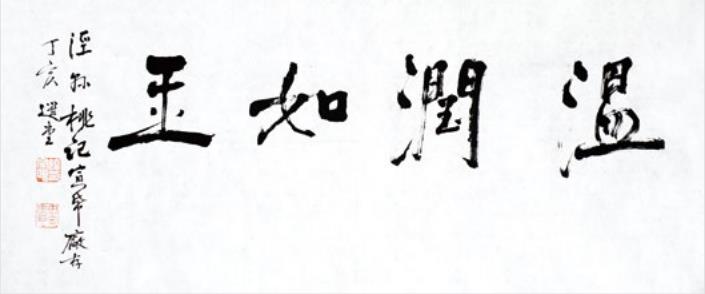 温潤如玉
涇縣桃記宣帋廠存
丁亥選堂